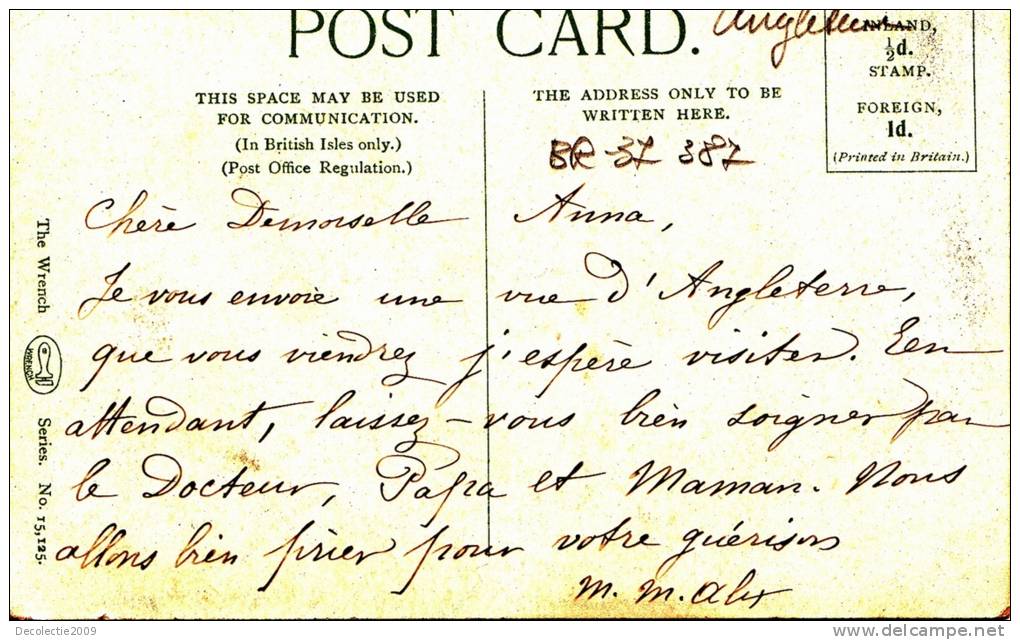 POST CARD.
Angleterre
INLAND,
½d.
STAMP.
FOREIGN,
1d.
(Printed in Britain.)
THIS SPACE MAY BE USED
FOR COMMUNICATION.
(In British Isles only.)
(Post Office Regulation.)
THE ADDRESS ONLY TO BE
WRITTEN HERE.
BR 37 387
Chère Demoiselle Anna,
Je vous envoie une vue d'Angleterre,
que vous viendrez j'espère visiter. En
attendant, laissez-vous bien soigner par
le Docteur, Papa et Maman. Nous
allons bien prier pour votre guérison
M. M. Alix
The Wrench
WRENCH
Series. No. 15,125.
Decolectie2009
delcampe.net